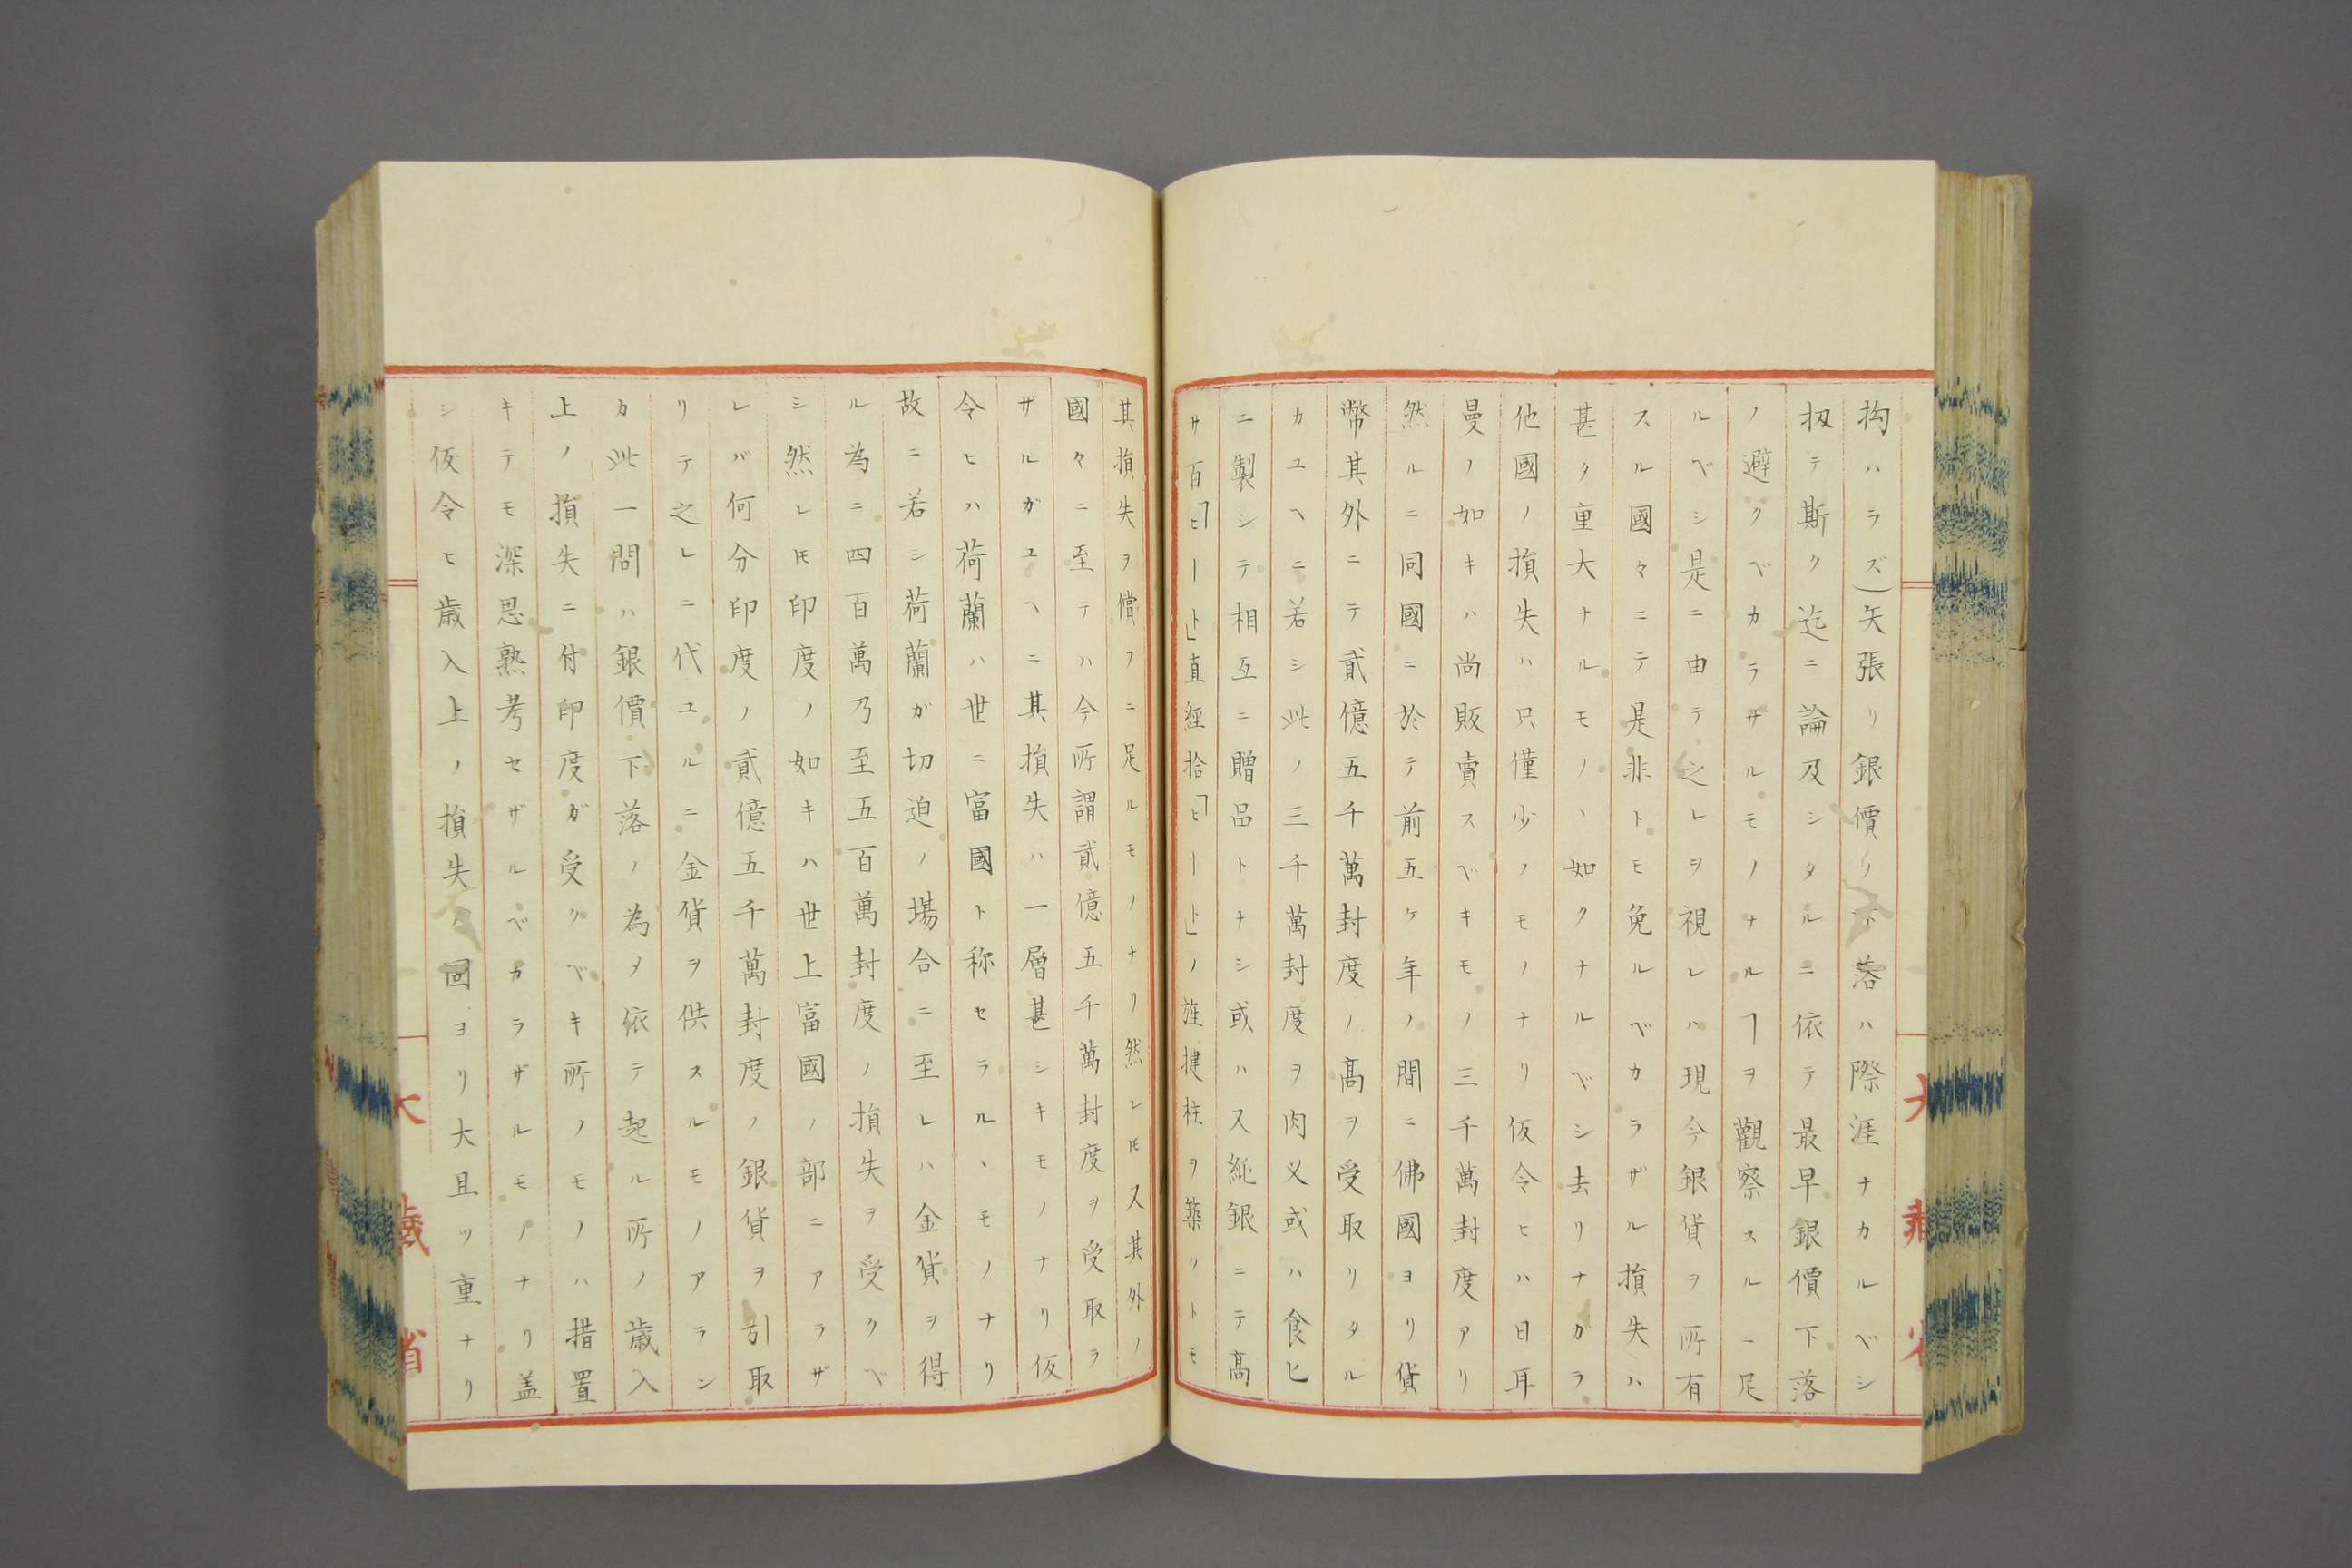 拘ハラズ)矢張リ銀價ノ下落ハ際涯ナカルベシ
扨テ斯ク迄ニ論及シタルニ依テ最早銀價下落
ノ避クベカラザルモノナルヿヲ觀察スルニ足
ルベシ是ニ由テ之レヲ視レハ現今銀貨ヲ所有
スル國々ニテ是非トモ免ルベカラザル損失ハ
甚タ重大ナルモノヽ如クナルベシ去リナガラ
他國ノ損失ハ只僅少ノモノナリ仮令ヒハ日耳
曼ノ如キハ尚販賣スベキモノ三千萬封度アリ
然ルニ同國ニ於テ前五ケ年ノ間ニ佛國ヨリ貨
幣其外ニテ貳億五千萬封度ノ髙ヲ受取リタル
カユヘニ若シ此ノ三千萬封度ヲ肉叉或ハ食匕
ニ製シテ相互ニ贈品トナシ或ハ又純銀ニテ髙
サ百「ヒート」直經拾「ヒート」ノ旌揵柱ヲ築クトモ
其損失ヲ償フニ足ルモノナリ然レ𪜈又其外ノ
國々ニ至テハ今所謂貳億五千萬封度ヲ受取ラ
サルガユヘニ其損失ハ一層甚シキモノナリ仮
令ヒハ荷蘭ハ世ニ富國ト称セラルヽモノナリ
故ニ若シ荷蘭ガ切迫ノ場合ニ至レハ金貨ヲ得
ル為ニ四百萬乃至五百萬封度ノ損失ヲ受クベ
シ然レ𪜈印度ノ如キハ世上富國ノ部ニアラザ
レバ何分印度ノ貳億五千萬封度ノ銀貨ヲ引取
リテ之レニ代ユルニ金貨ヲ供スルモノアラン
カ此一問ハ銀價下落ノ為メ依テ起ル所ノ歳入
上ノ損失ニ付印度ガ受クベキ所ノモノハ措置
キテモ深思熟考セザルベカラザルモノナリ盖
シ仮令ヒ歳入上ノ損失ハ固ヨリ大且ツ重ナリ
大藏省
大藏省